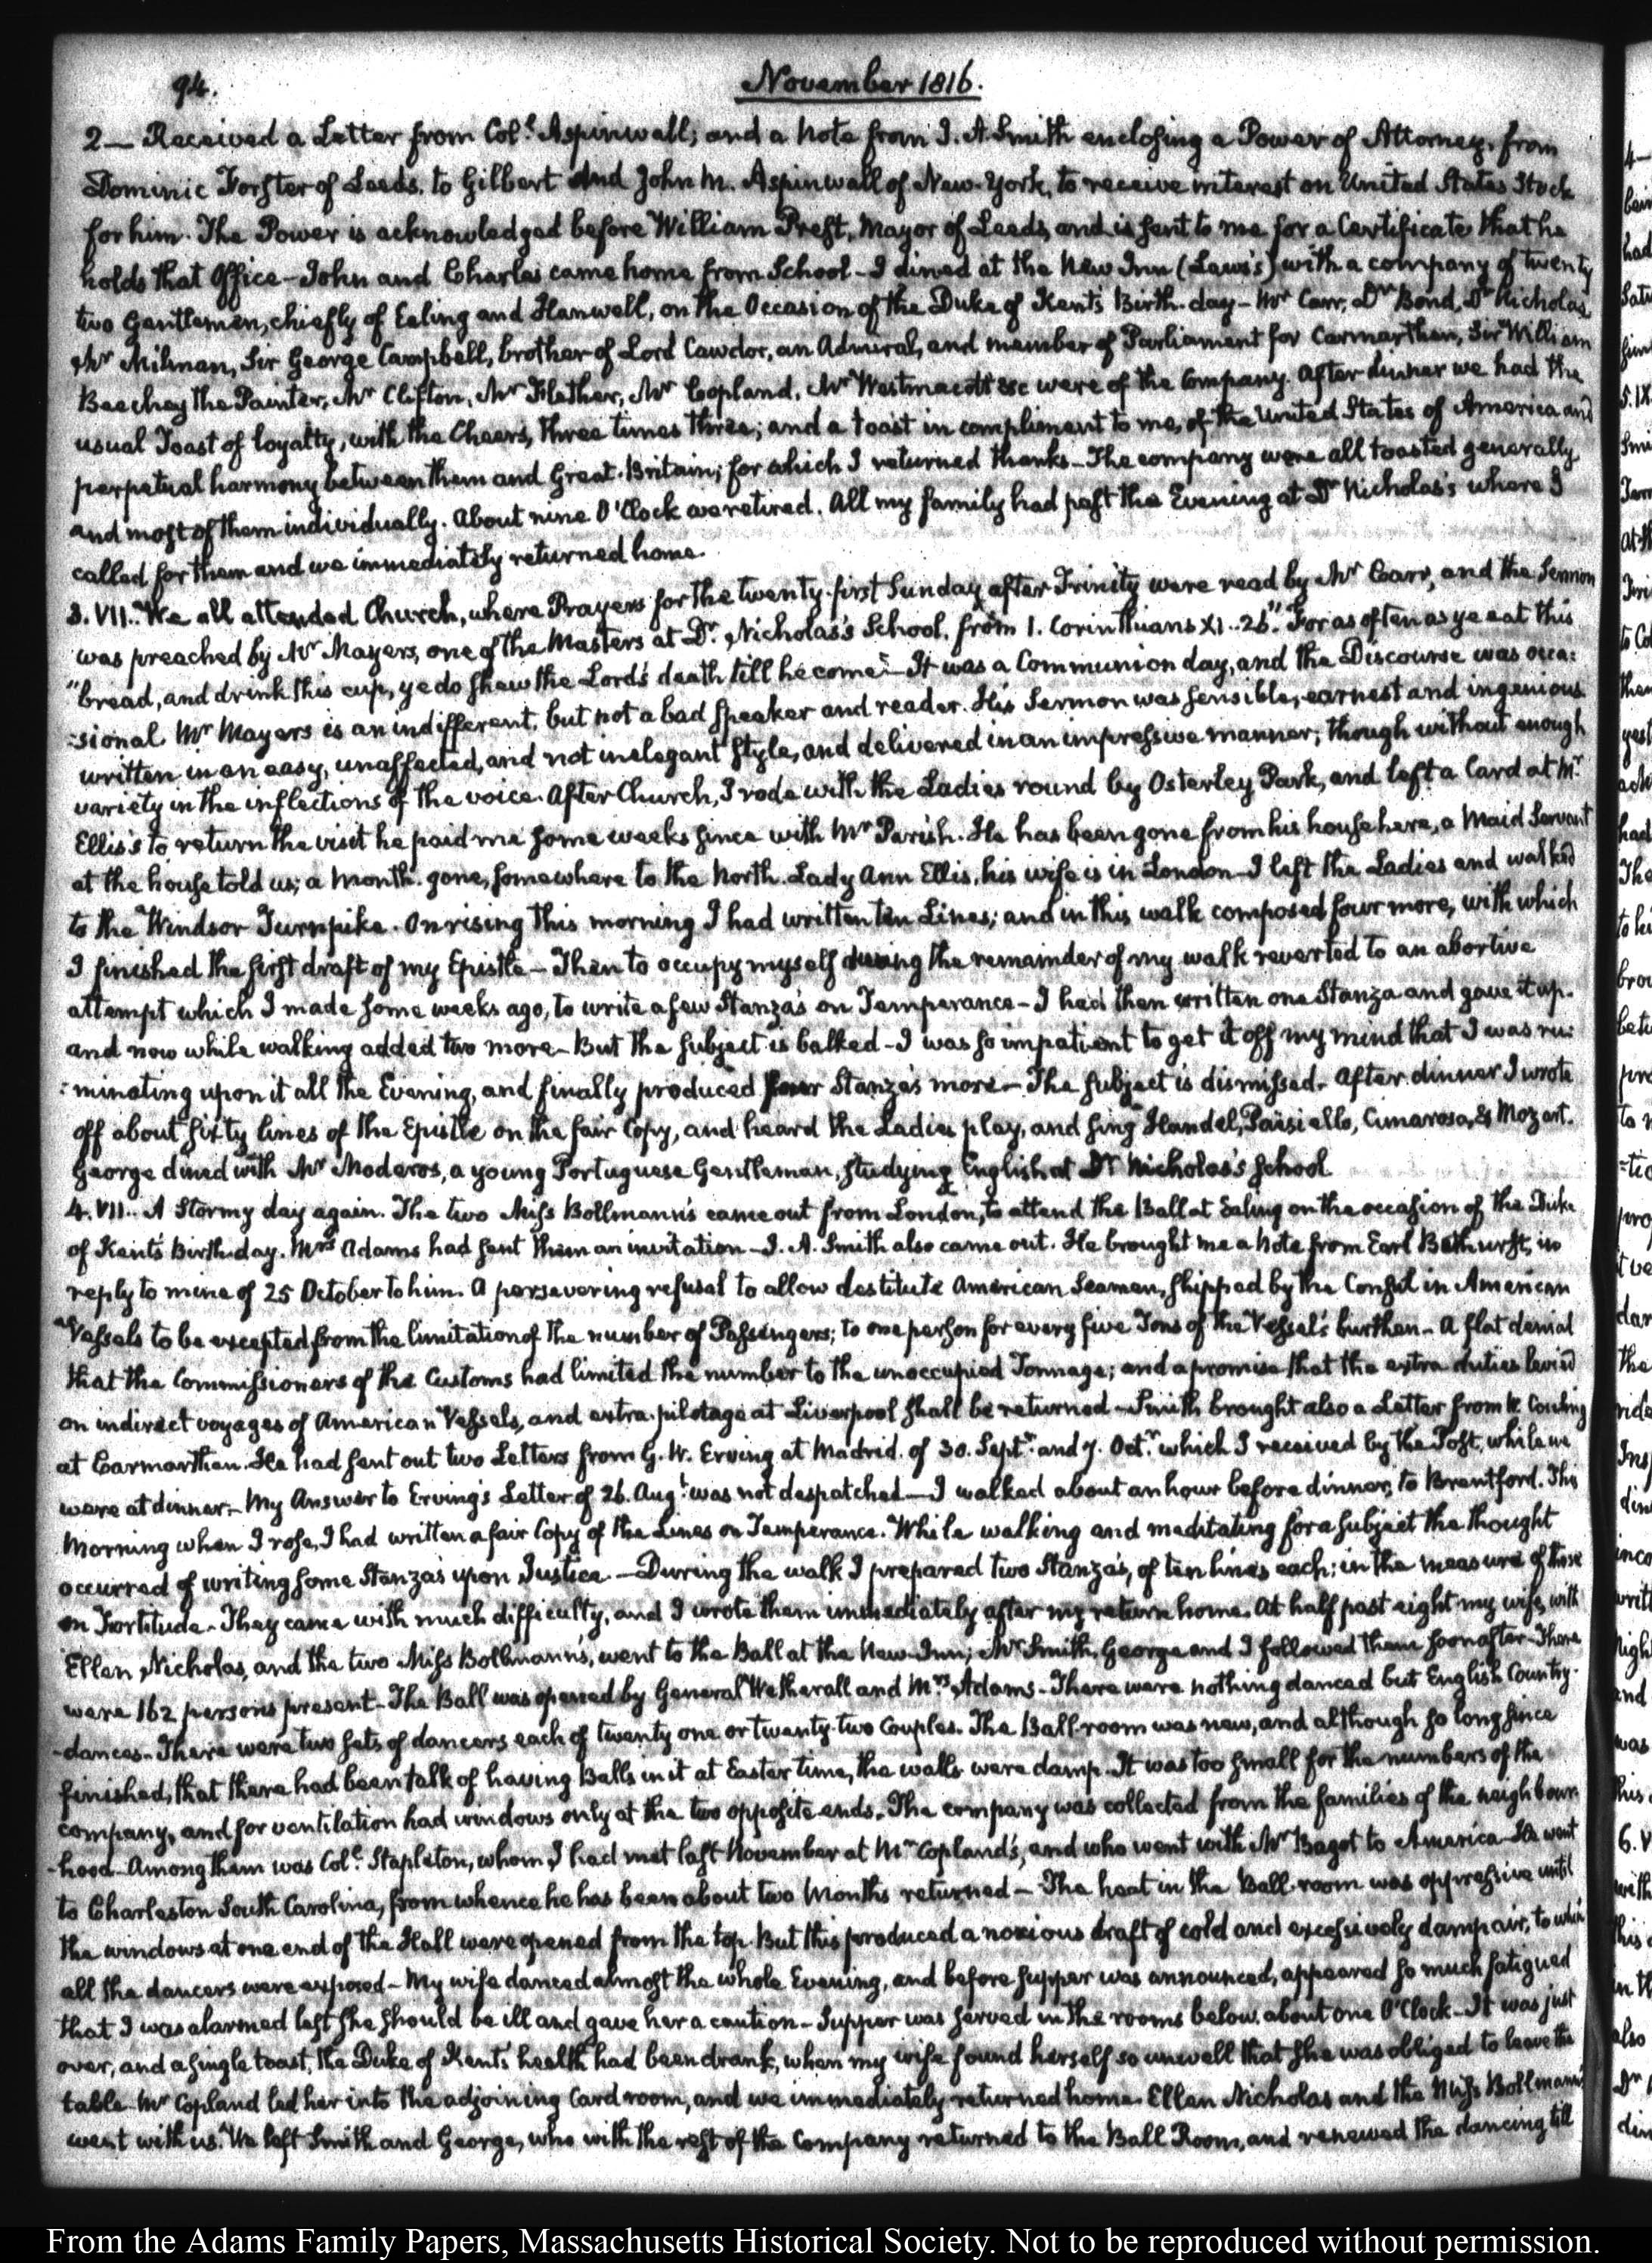 94.
November 1816.
2 — Received a Letter from Col.l Aspinwall; and a Note from J. A. Smith enclosing a Power of Attorney, from
Dominic Forster of Leeds, to Gilbert and John M. Aspinwall of New-York, to receive interest on United States Stock
for him. The Power is acknowledged before William Prest, Mayor of Leeds, and is sent to me for a Certificate that he
holds that Office — John and Charles came home from School — I dined at the New Inn (Laws's) with a company of twenty
two Gentlemen, chiefly of Ealing and Hanwell, on the Occasion of the Duke of Kent's Birth-day — Mr Carr, Dr Bond, Dr Nicholas,
Mr Milman, Sir George Campbell, brother of Lord Cawdor, an Admiral, and member of Parliament for Carmarthen, Sir William
Beechey the Painter, Mr Clifton, Mr Flather, Mr Copland, Mr Westmacott &c were of the Company. After dinner we had the
usual Toast of loyalty, with the Cheers, three times three; and a toast in compliment to me, of the United States of America and
perpetual harmony between them and Great-Britain; for which I returned thanks — The company were all toasted generally
and most of them individually. About nine O'Clock we retired. All my family had past the Evening at Dr Nicholas's where I
called for them and we immediately returned home.
3. VII.. We all attended Church, where Prayers for the twenty-first Sunday after Trinity were read by Mr Carr, and the Sermon
was preached by Mr Mayers, one of the Masters at Dr. Nicholas's School, from 1. Corinthians XI..26. "For as often as ye eat this
"bread, and drink this cup, ye do shew the Lord's death till he come" — It was a Communion day, and the Discourse was occa:
:sional. Mr Mayers is an indifferent, but not a bad speaker and reader. His Sermon was sensible, earnest and ingenious
written in an easy, unaffected, and not inelegant style, and delivered in an impressive manner; though without enough
variety in the inflections of the voice. After Church, I rode with the Ladies round by Osterley Park, and left a Card at Mr
Ellis's to return the visit he paid me some weeks since with Mr Parish. He has been gone from his house here, a Maid Servant
at the house told us, a Month. gone, somewhere to the North. Lady Ann Ellis, his wife is in London — I left the Ladies and walked
to the Windsor Turnpike. On rising this morning I had written ten Lines; and in this walk composed four more, with which
I finished the first draft of my Epistle — Then to occupy myself during the remainder of my walk reverted to an abortive
attempt which I made some weeks ago, to write a few Stanza's on Temperance — I had then written one Stanza and gave it up.
and now while walking added two more — But the subject is balked — I was so impatient to get it off my mind that I was ru:
:minating upon it all the Evening, and finally produced four Stanza's more — The subject is dismissed. After dinner I wrote
off about sixty lines of the Epistle on the fair Copy, and heard the Ladies play, and sing Handel, Paisiello, Cimarosa, & Mozart.
George dined with Mr Maderos, a young Portuguese Gentleman, studying English at Dr Nicholas's School
4. VII.. A Stormy day again. The two Miss Bollmann's came out from London, to attend the Ball at Ealing on the occasion of the Duke
of Kent's Birth-day. Mrs Adams had sent them an invitation — J. A. Smith also came out. He brought me a Note from Earl Bathurst, in
reply to mine of 25 October to him. A persevering refusal to allow destitute American Seamen, shipped by the Consul in American
Vessels to be excepted from the limitation of the number of Passengers; to one person for every five Tons of the Vessel's burthen — A flat denial
that the Commissioners of the Customs had limited the number to the unoccupied Tonnage; and a promise that the extra duties levied
on indirect voyages of American Vessels, and extra-pilotage at Liverpool shall be returned — Smith brought also a Letter from W. Couling
at Carmarthen. He had sent out two Letters from G. W. Erving at Madrid. of 30. Sept.r and 7. Oct.r which I received by the Post, while we
were at dinner — My Answer to Erving's Letter of 26. Aug.t was not despatched — I walked about an hour before dinner, to Brentford. This
Morning when I rose, I had written a fair Copy of the Lines on Temperance. While walking and meditating for a subject the thought
occurred of writing some Stanza's upon Justice. — During the walk I prepared two Stanza's, of ten lines each; in the measure of those
on Fortitude — They came with much difficulty, and I wrote them immediately after my return home. At half past eight my wife, with
Ellen Nicholas, and the two Miss Bollmann's, went to the Ball at the New-Inn; Mr Smith, George and I followed them soon after — There
were 162 persons present — The Ball was opened by General Wetherall and Mrs Adams — There were nothing danced but English Country-
-dances — There were two sets of dancers each of twenty one or twenty-two Couples. The Ball-room was new, and although so long since
finished, that there had been talk of having Balls in it at Easter time, the walls were damp. It was too small for the numbers of the
company, and for ventilation had windows only at the two opposite ends. The company was collected from the families of the neighbour
-hood — Among them was Col.l Stapleton, whom I had met last November at Mr Copland's, and who went with Mr Bagot to America — He went
to Charleston South Carolina, from whence he has been about two Months returned — The heat in the Ball-room was oppressive until
the windows at one end of the Hall were opened from the top. But this produced a noxious draft of cold and excessively damp air, to which
all the dancers were exposed — My wife danced almost the whole Evening, and before supper was announced, appeared so much fatigued
that I was alarmed lest she should be ill and gave her a caution — Supper was served in the rooms below, about one O'Clock — It was just
over, and a single toast, the Duke of Kent's health had been drank, when my wife found herself so unwell that she was obliged to leave the
table — Mr Copland led her into the adjoining Card room, and we immediately returned home. Ellen Nicholas and the Miss Bollmann's
went with us. We left Smith and George, who with the rest of the Company returned to the Ball Room, and renewed the dancing till
From the Adams Family Papers, Massachusetts Historical Society. Not to be reproduced without permission.